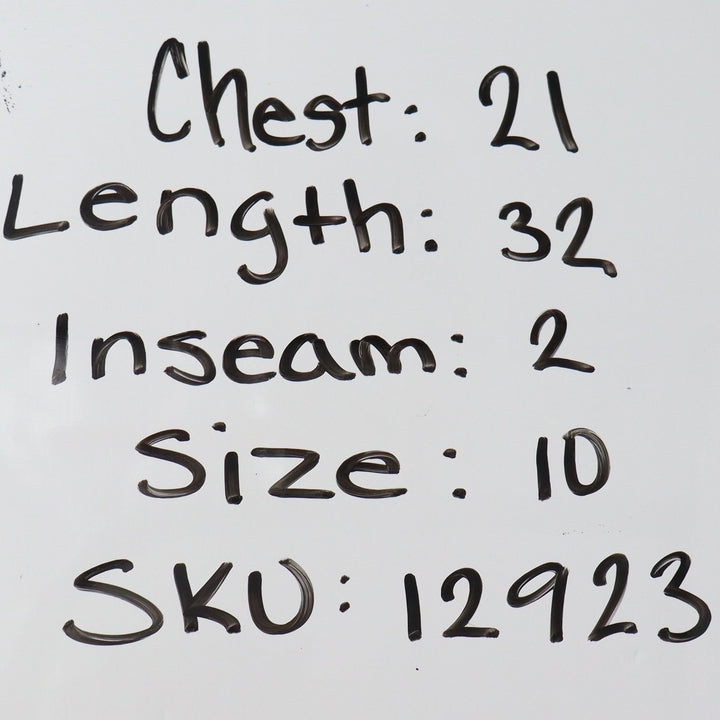 Chest: 21
Length: 32
Inseam: 2
Size: 10
SKU: 12923